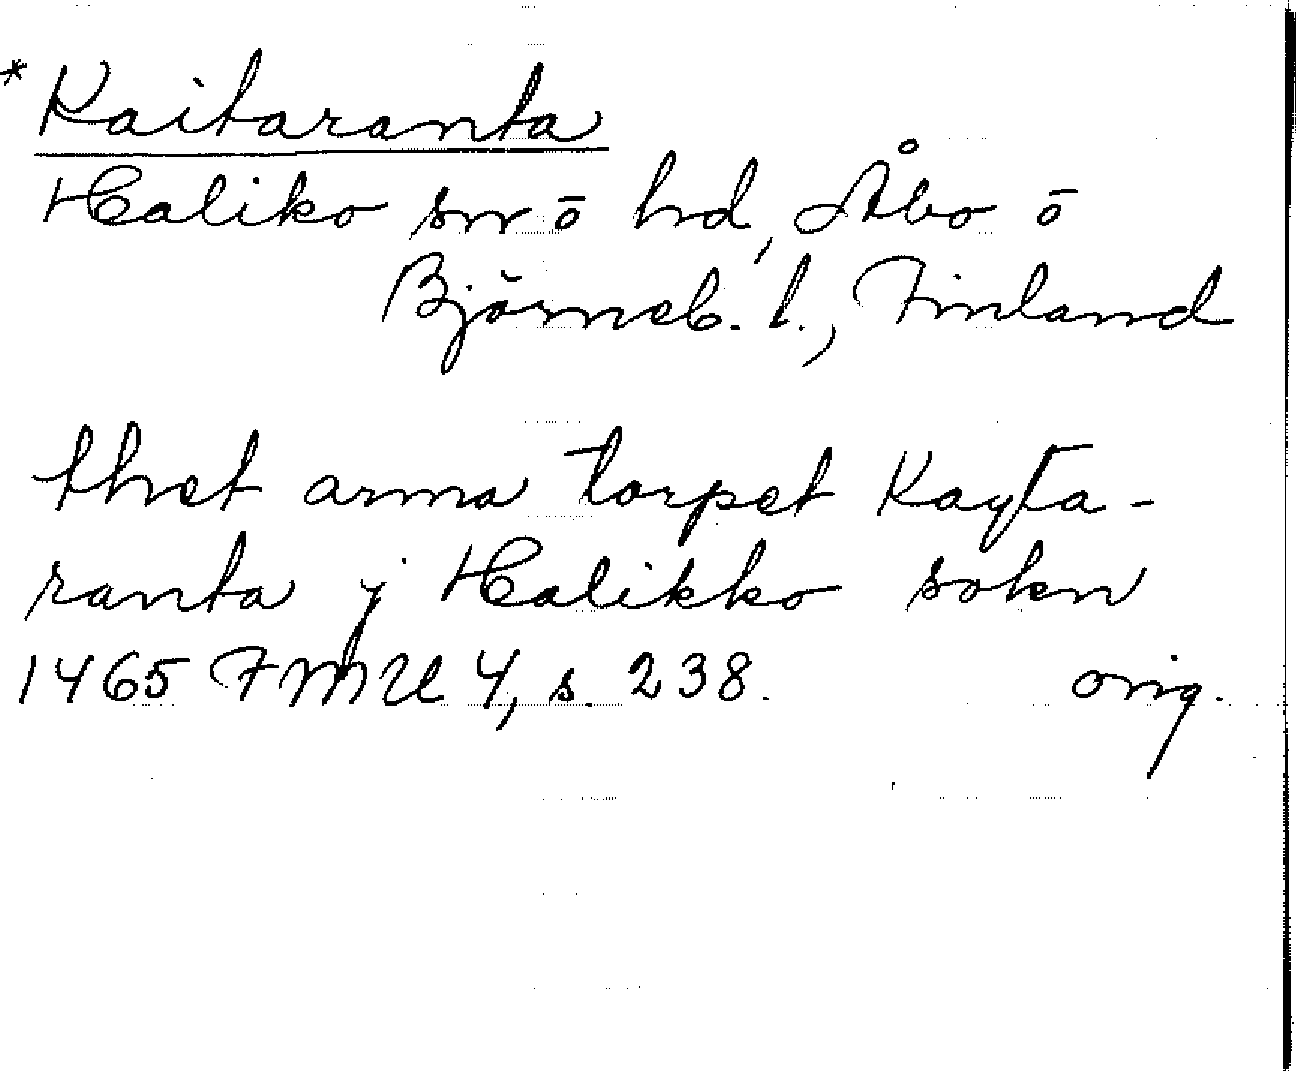 *Kaitaranta
Haliko sn ō hd, Åbo ō
Björneb. l., Finland
thet arma torpet Kayta-
ranta j Halikko sokn
1465 FMU 4, s. 238. orig.